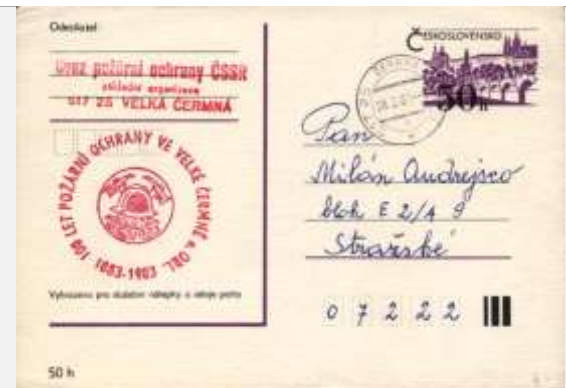 Odesílatel:
Svaz požární ochrany ČSSR
základní organizace
517 25 VELKÁ ČERMNÁ
100 LET POŽÁRNÍ OCHRANY VE VELKÉ ČERMNÉ n. ORL.
1883-1983
Vyhrazeno pro služební nálepky a údaje pošty
50 h
ČESKOSLOVENSKO
50h
Pan
Milán Andrejco
blok E 2/A 9
Strážské
07222